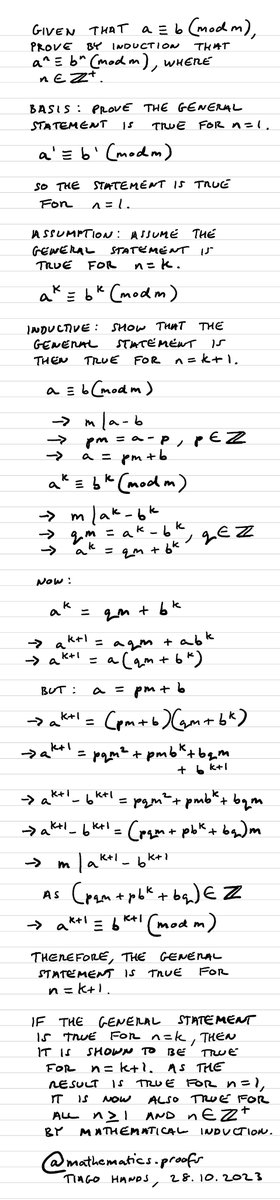 GIVEN THAT a ≡ b (mod m),
PROVE BY INDUCTION THAT
aⁿ ≡ bⁿ (mod m), WHERE
n ∈ ℤ⁺.
BASIS: PROVE THE GENERAL
STATEMENT IS TRUE FOR n=1.
a¹ ≡ b¹ (mod m)
SO THE STATEMENT IS TRUE
FOR n=1.
ASSUMPTION: ASSUME THE
GENERAL STATEMENT IS
TRUE FOR n=k.
aᵏ ≡ bᵏ (mod m)
INDUCTIVE: SHOW THAT THE
GENERAL STATEMENT IS
THEN TRUE FOR n=k+1.
a ≡ b (mod m)
→ m | a-b
→ pm = a-p, p ∈ ℤ
→ a = pm+b
aᵏ ≡ bᵏ (mod m)
→ m | aᵏ-bᵏ
→ qm = aᵏ-bᵏ, q ∈ ℤ
→ aᵏ = qm + bᵏ
NOW:
aᵏ = qm + bᵏ
→ aᵏ⁺¹ = aqm + abᵏ
→ aᵏ⁺¹ = a(qm + bᵏ)
BUT: a = pm + b
→ aᵏ⁺¹ = (pm+b)(qm+bᵏ)
→ aᵏ⁺¹ = pqm² + pmbᵏ + bqm
+ bᵏ⁺¹
→ aᵏ⁺¹ - bᵏ⁺¹ = pqm² + pmbᵏ + bqm
→ aᵏ⁺¹ - bᵏ⁺¹ = (pqm + pbᵏ + bq)m
→ m | aᵏ⁺¹ - bᵏ⁺¹
AS (pqm + pbᵏ + bq) ∈ ℤ
→ aᵏ⁺¹ ≡ bᵏ⁺¹ (mod m)
THEREFORE, THE GENERAL
STATEMENT IS TRUE FOR
n=k+1.
IF THE GENERAL STATEMENT
IS TRUE FOR n=k, THEN
IT IS SHOWN TO BE TRUE
FOR n=k+1. AS THE
RESULT IS TRUE FOR n=1,
IT IS NOW ALSO TRUE FOR
ALL n≥1 AND n ∈ ℤ⁺
BY MATHEMATICAL INDUCTION.
@mathematics.proofs
TIAGO HANDS, 28.10.2023